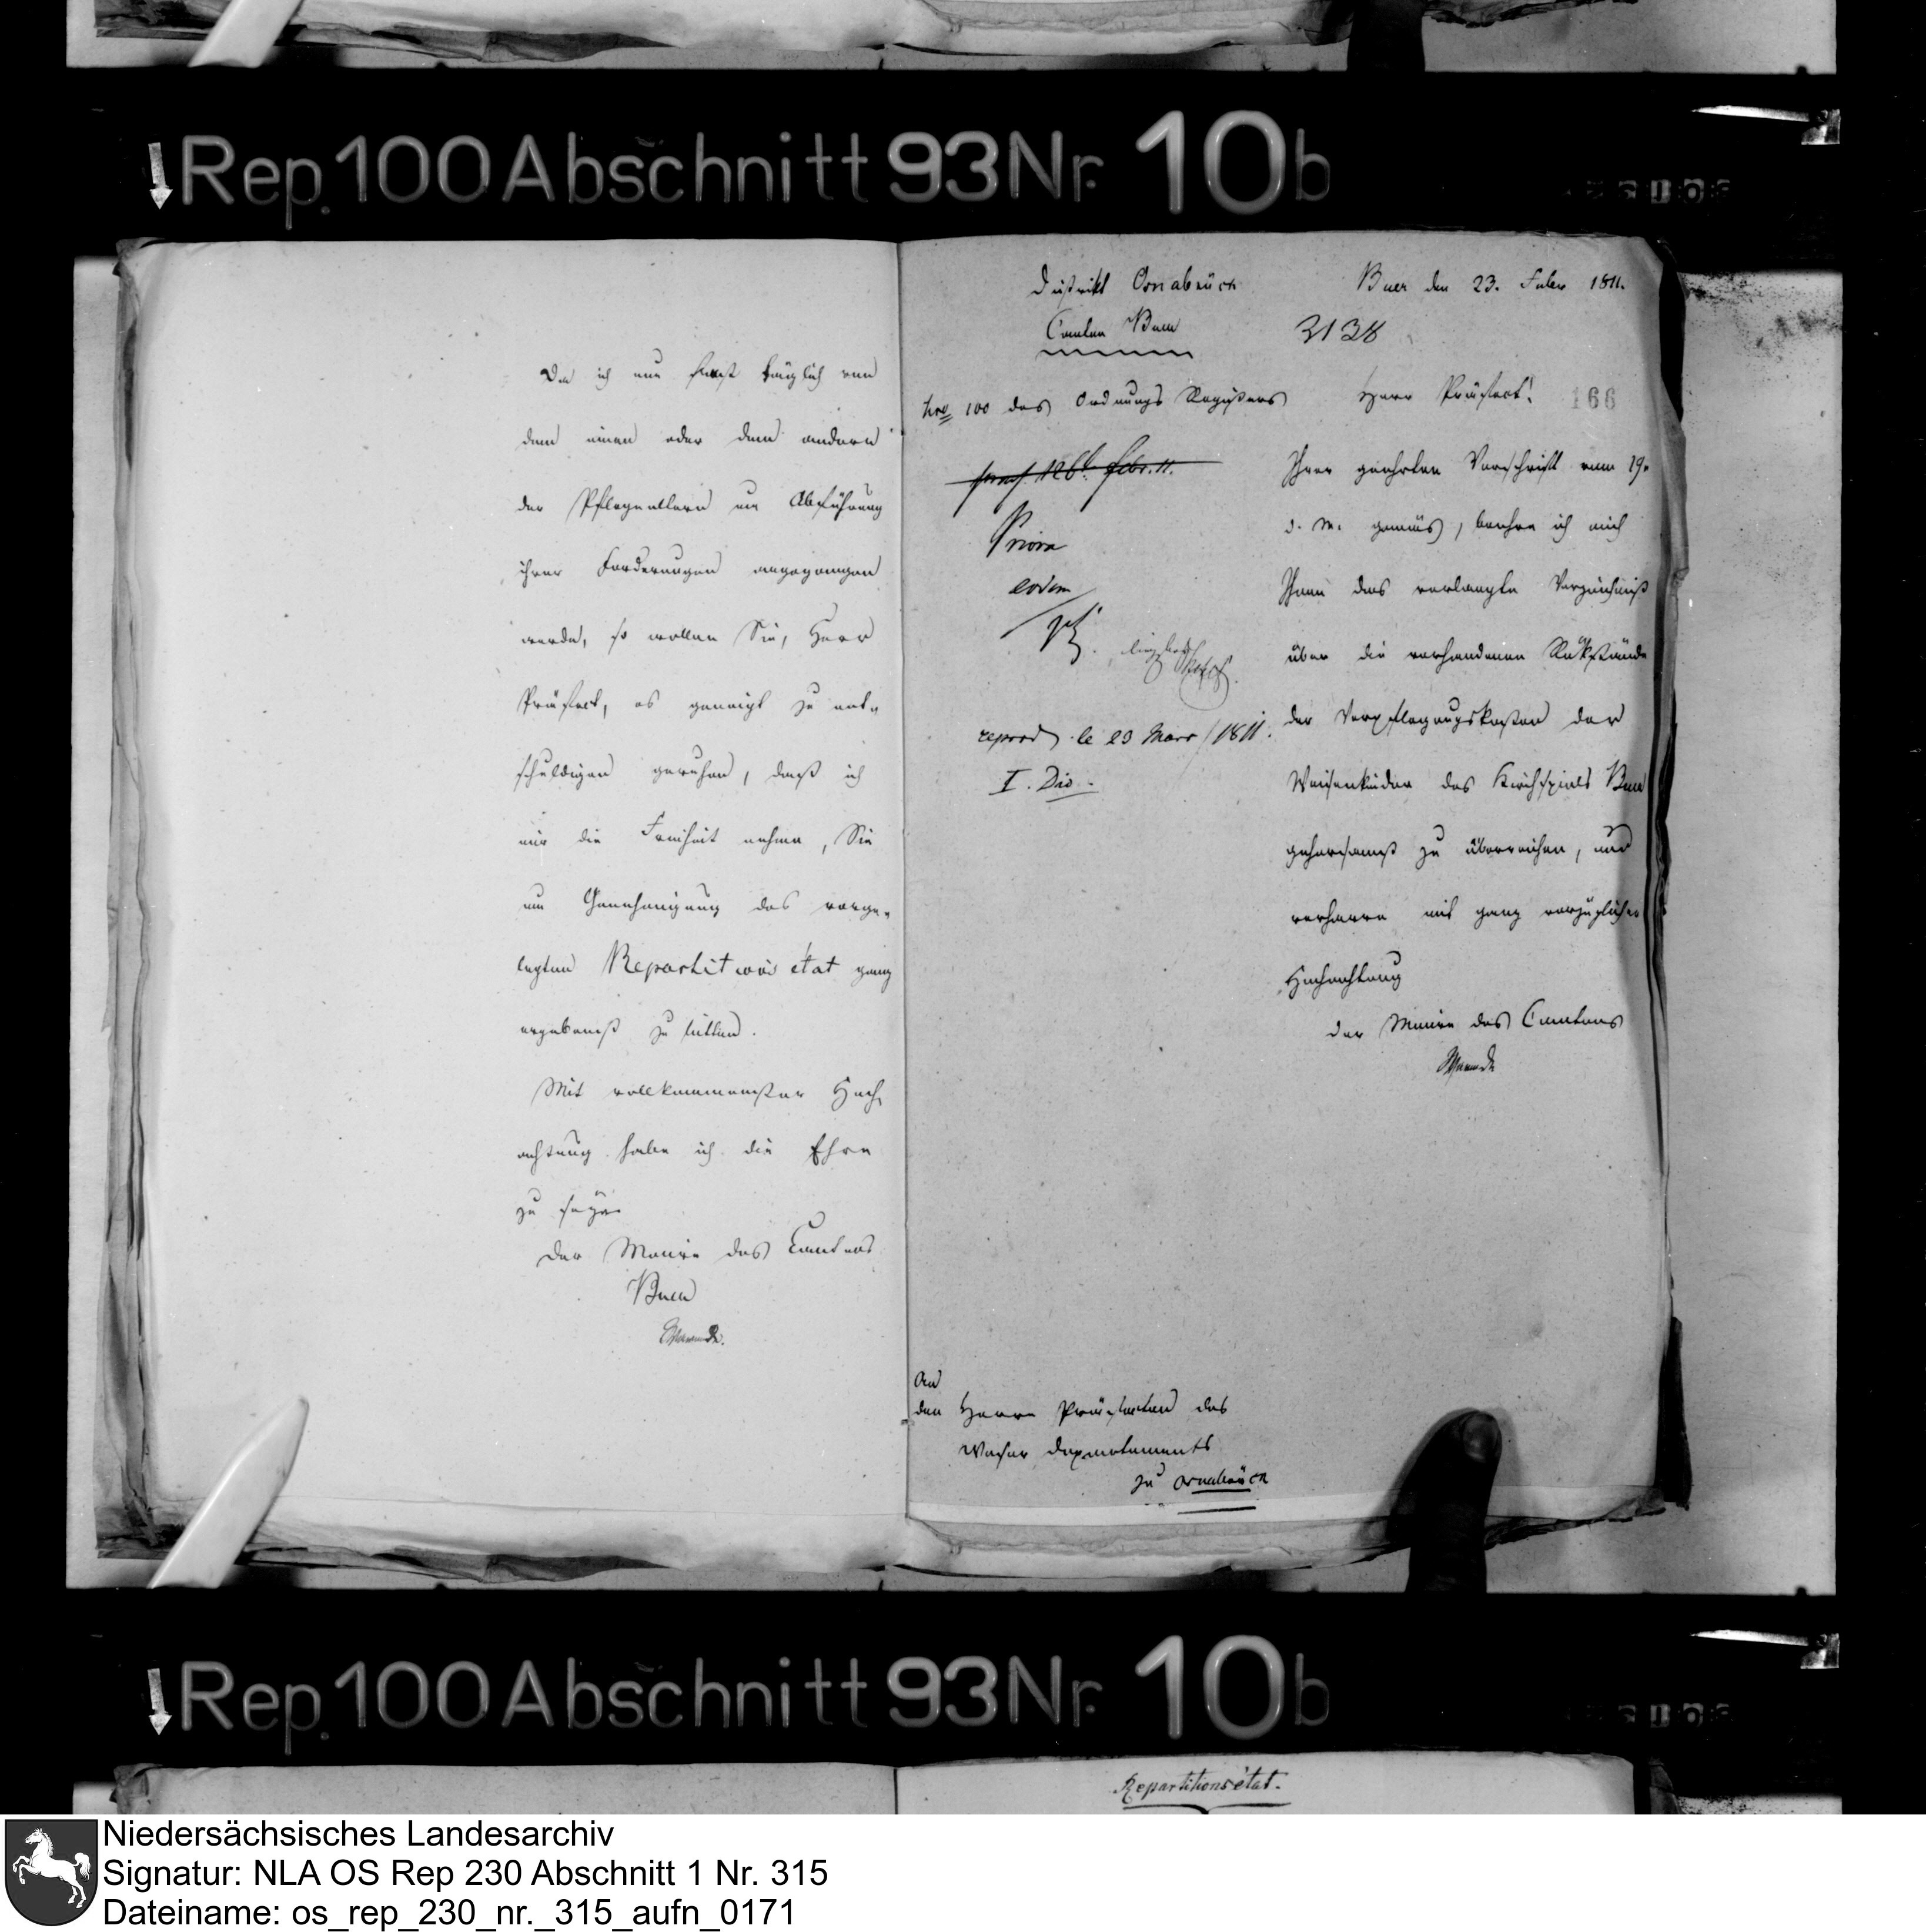 Rep. 100 Abschnitt 93 Nr. 10b
Da ich nun fast täglich von
dem einen oder dem andern
der Pflegeeltern um Abführung
ihrer Forderungen angegangen
werde, so wollen Sie, Herr
Präfect, es geneigt zu ent-
schuldigen geruhen, daß ich
mir die Freiheit nehme, Sie
um Genehmigung des vorge-
legten Repartitions état ganz
ergebenst zu bitten.
Mit vollkommenster Hoch-
achtung habe ich die Ehre
zu seyn
Der Maire des Cantons
Buer
District Osnabrück
Canton Buer
Buer den 23. Febr 1811.
3138
Nro 100 des Ordnungs Registers
Herr Präfect!
166
Febr. 11.
Priora
eodem
repond le 23 Mars 1811.
I. Div.
Ihrer geehrten Vorschrift vom 19.
d. M. gemäs, beehre ich mich
Ihnen das verlangte Verzeichniß
über die vorhandenen Rükstände
der Verpflegungskosten der
Waisenkinder des Kirchspiels Buer
gehorsamst zu überreichen, und
verharre mit ganz vorzüglicher
Hochachtung
Der Maire des Cantons
An
den Herrn Präfecten des
Weser Departements
zu Osnabrück
Rep. 100 Abschnitt 93 Nr. 10b
Repartitionsétat.
Niedersächsisches Landesarchiv
Signatur: NLA OS Rep 230 Abschnitt 1 Nr. 315
Dateiname: os_rep_230_nr._315_aufn_0171